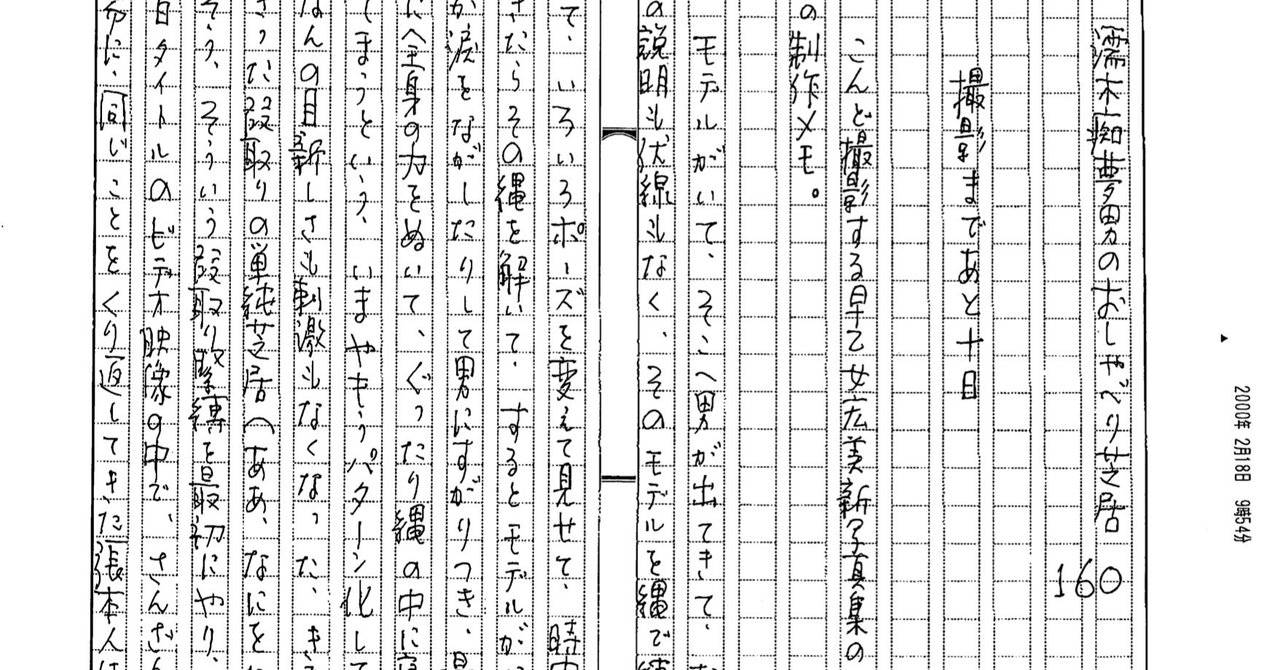 濡木痴夢男のおしゃべり芝居
160
撮影まであと十日
こんど撮影する早乙女宏美新写真集の
の制作メモ。
モデルがいて、そこへ男が出てきて、
の説明も伏線もなく、そのモデルを縄で
て、いろいろポーズを変えて見せて、時
きたらその縄を解いて、するとモデルが
か涙をながしたりして男にすがりつき、
に全身の力をぬいて、ぐったり縄の中に
てまうという、いまやもうパターン化して
なんの目新しさも刺激もなくなった、き
きった段取りの単純芝居（ああ、なにを
そう、そういう段取り緊縛を最初にやり、
日タイトルのビデオ映像の中で、さんざん
命に、同じことをくり返してきた張本人は
2000年 2月18日 9時54分